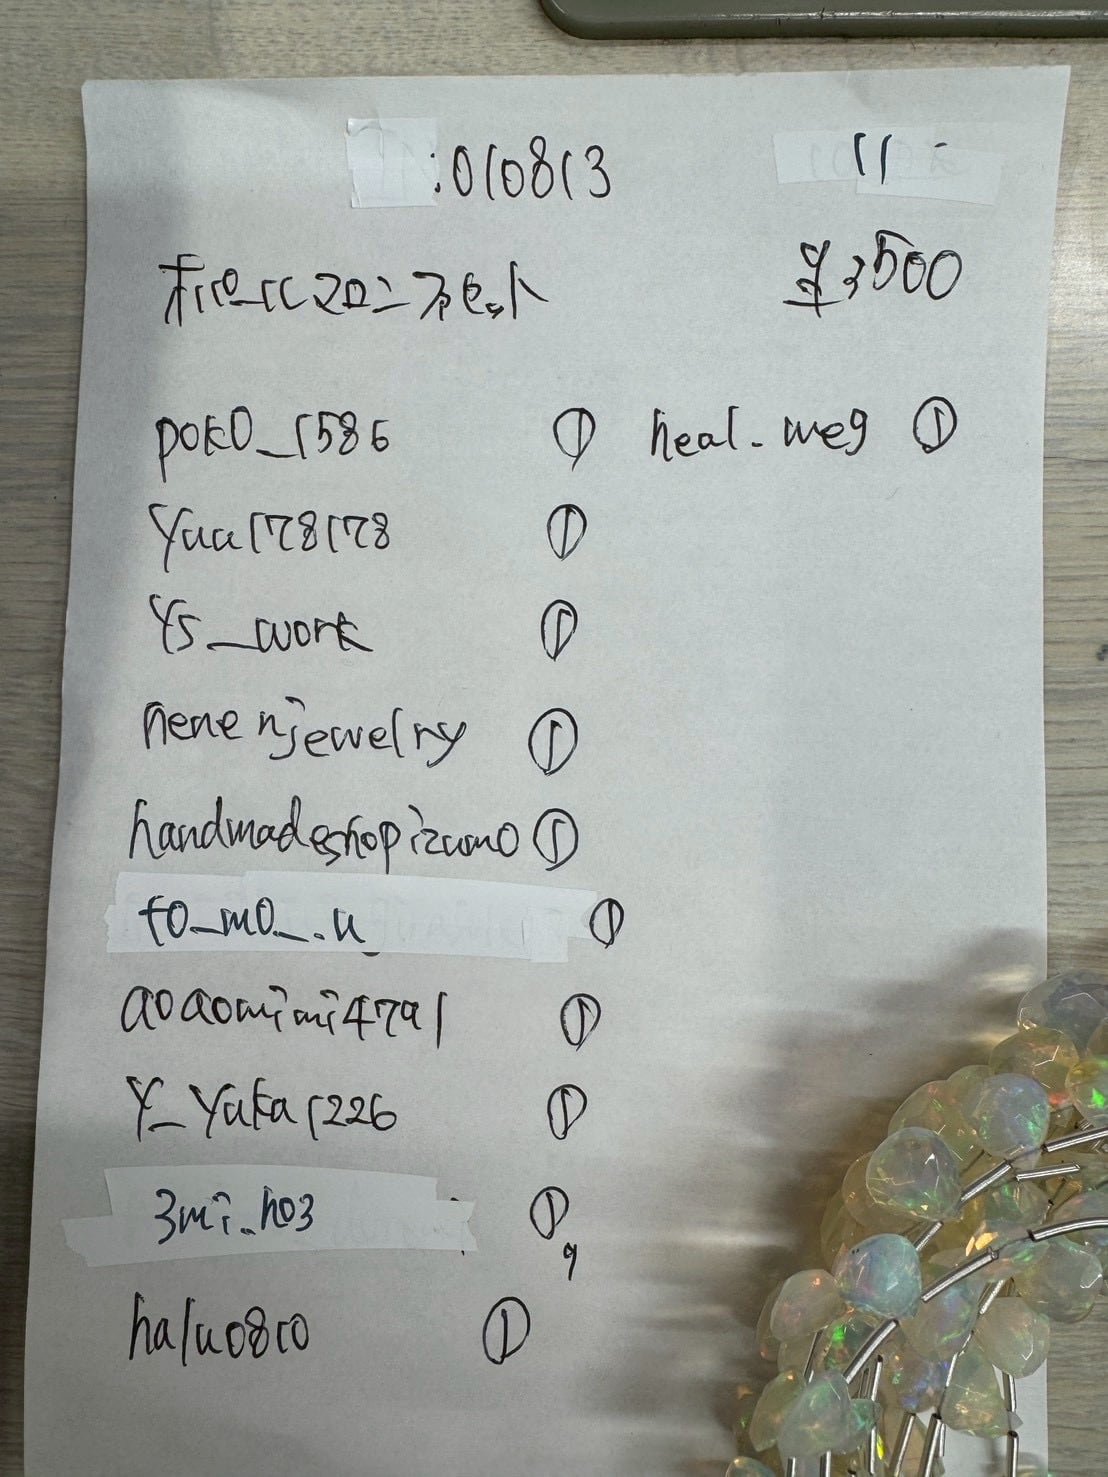 :010813 11-
オパールマロンプルセット ¥3500
poko_1586 ① heal_meg ①
Yuu178178 ①
Ys_work ①
nenenjewelry ①
handmadeshopizumo ①
to_mo_.u ①
aoaomimi4791 ①
Y_Yuka1226 ①
3mi_ho3 ①
9
halu0810 ①